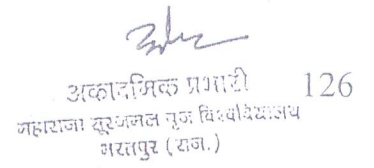 अकादमिक प्रभारी 126
महाराजा सूरजमल बृज विश्वविद्यालय
भरतपुर (राज.)